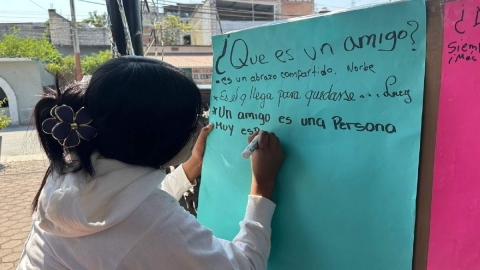 ¿Que es un amigo?
• es un abrazo compartido. Norbe
* Es el q llega para quedarse... Lucy
* Un amigo es una Persona
Muy es
Siem